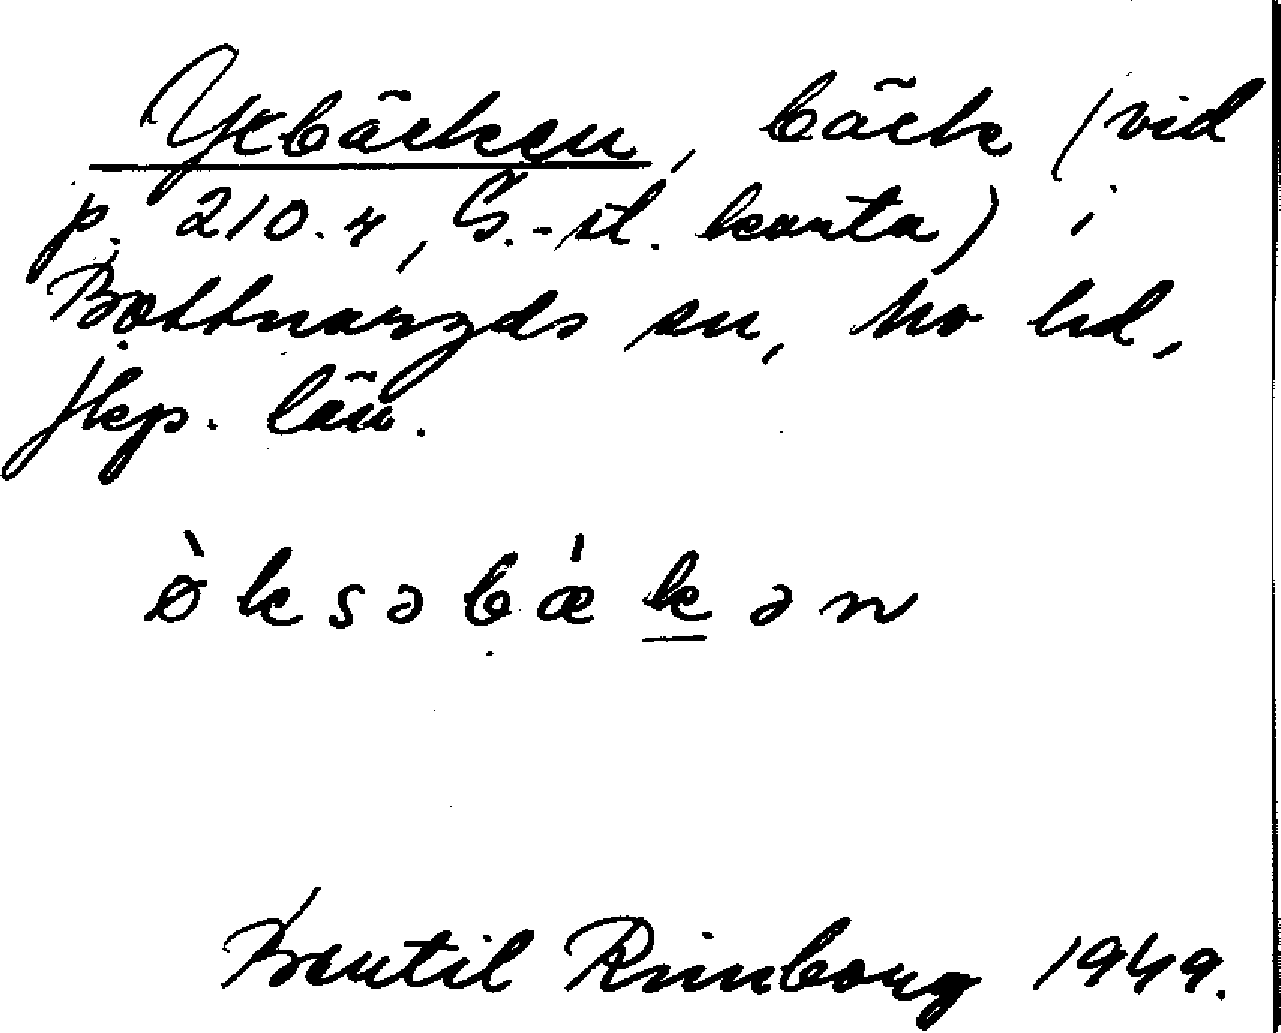 Yxbäcken, bäck (vid
p. 210.4, G.-st. karta) i
Bottnaryds sn, Mo hd,
Jkp. län.
òksəbǽkən
Bertil Rimborg 1949.